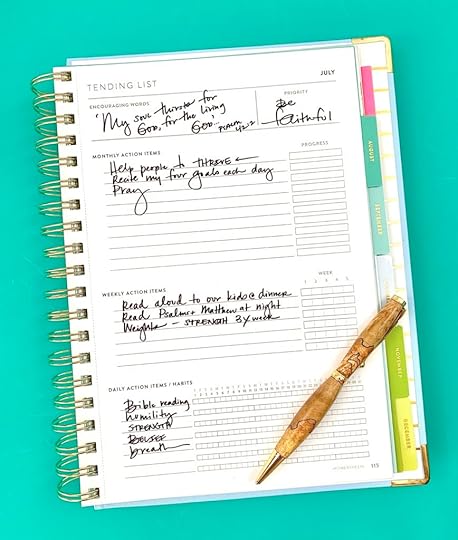 TENDING LIST
JULY
ENCOURAGING WORDS
"My soul thirsts for
God, for the living
God..." PSALM 42:2
PRIORITY
Be
faithful
MONTHLY ACTION ITEMS
PROGRESS
Help people to THRIVE
Recite my four goals each day
Pray
WEEKLY ACTION ITEMS
WEEK
1 2 3 4 5
Read aloud to our kids @ dinner
Read Psalms + Matthew at night
Weights - STRENGTH 3x week
DAILY ACTION ITEMS / HABITS
Bible reading
humility
STRENGTH
BELIEF
breath
113
AUGUST
SEPTEMBER
NOVEMBER
DECEMBER